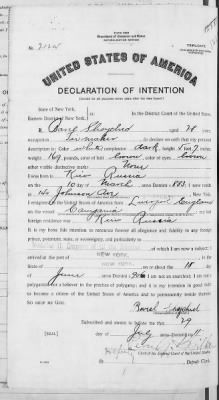 No. 2124
TRIPLICATE
UNITED STATES OF AMERICA
DECLARATION OF INTENTION
State of New York,
Eastern District of New York,
In the District Court of the United States.
I, aged 28 years,
occupation do declare on oath that my personal
description is: Color white, complexion dark, height 5 feet 2 inches,
weight 169 pounds, color of hair brown, color of eyes brown
other visible distinctive marks None
Kiev Russia
on the 10 day of March, anno Domini 1883; I now reside
at Johnson Ave.
I emigrated to the United States of America from Liverpool England
on the vessel Campania; my last
foreign residence was Kiev Russia
It is my bona fide intention to renounce forever all allegiance and fidelity to any foreign
prince, potentate, state, or sovereignty, and particularly to
of which I am now a subject; I
arrived at the port of NEW YORK, in the
State of NEW YORK on or about the 18 day
of June, anno Domini 1906; I am not an anarchist; I am not a
polygamist nor a believer in the practice of polygamy; and it is my intention in good faith
to become a citizen of the United States of America and to permanently reside therein:
So help me God.
Subscribed and sworn to before me this 29
[SEAL] day of July, anno Domini
Clerk of the District Court of the United States.
Deputy Clerk.